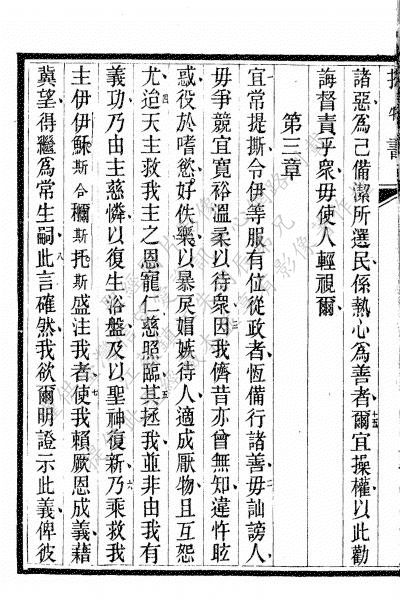 諸惡爲己備潔所選民係熱心爲善者爾宜操權以此勸
誨督責乎衆毋使人輕視爾
第三章
宜常提撕令伊等服有位從政者恆備行諸善毋訕謗人
毋爭競宜寬裕溫柔以待衆因我儕昔亦曾無知違忤眩
惑役於嗜慾好佚樂以暴戾媢嫉待人適成厭物且互怨
尤迨天主救我主之恩寵仁慈照臨其拯我並非由我有
義功乃由主慈憐以復生浴盤及以聖神復新乃乘救我
主伊伊穌斯合穪斯托斯盛注我者使我賴厥恩成義藉
冀望得繼爲常生嗣此言確然我欲爾明證示此義俾彼